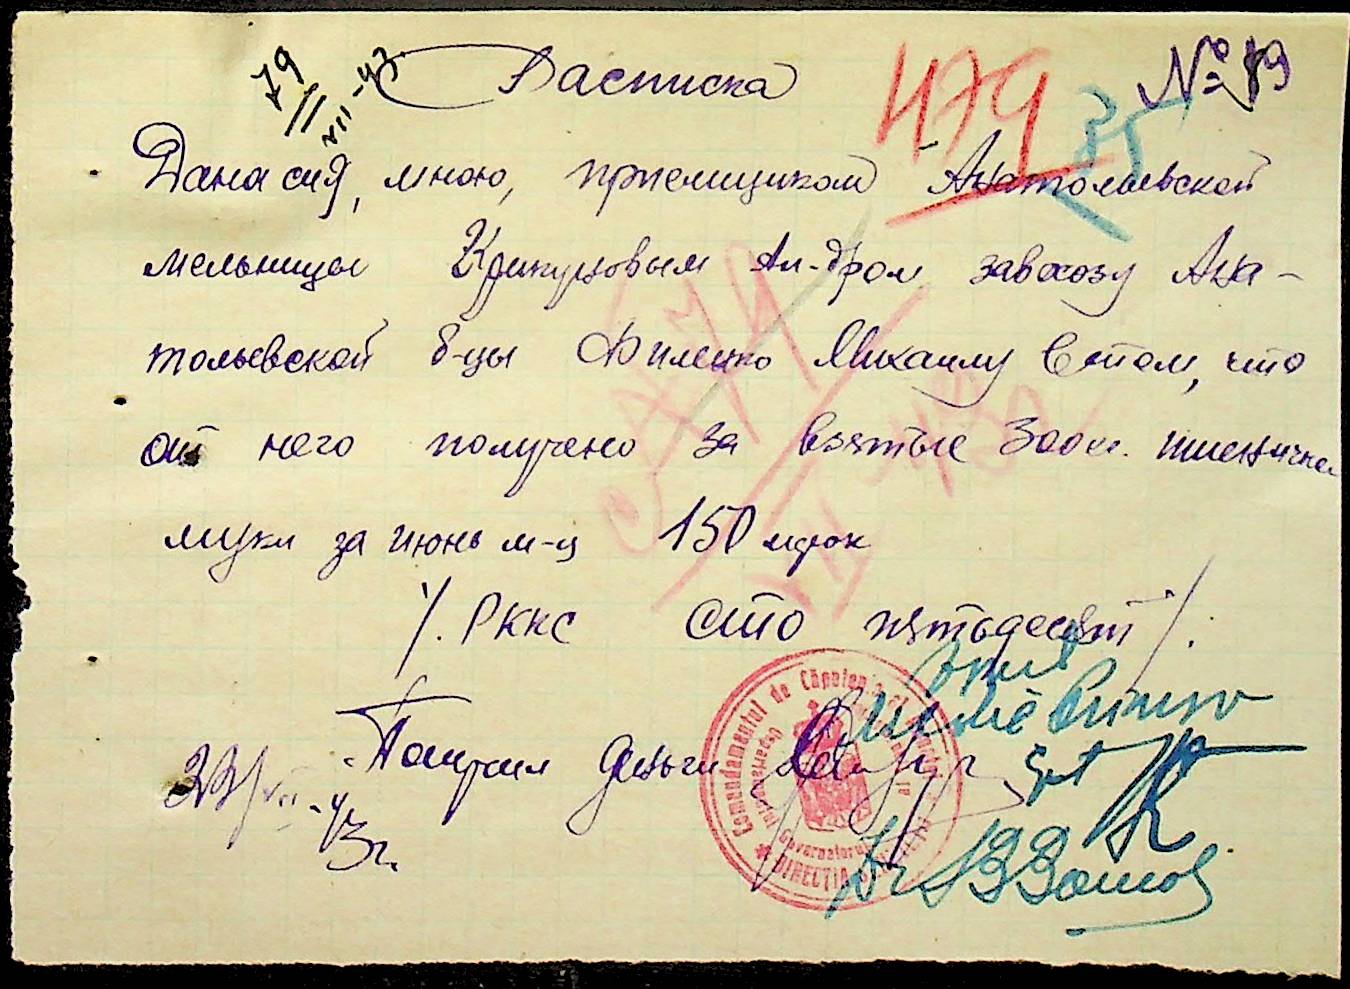 Расписка
№ 19
479
35
Дана сия, мною, приемщиком Анатольевской
мельницы Крикуновым Ал-дром завхозу Ана-
тольевской б-цы Филенко Михаилу в том, что
от него получено за взятые 300 кг. пшеничной
муки за июнь м-ц 150 марок
/. РККС сто пятьдесят /.
Получил деньги
23/VII-43г.
Comandamentul de Căpetenie al
Guvernatorul
DIRECȚIA